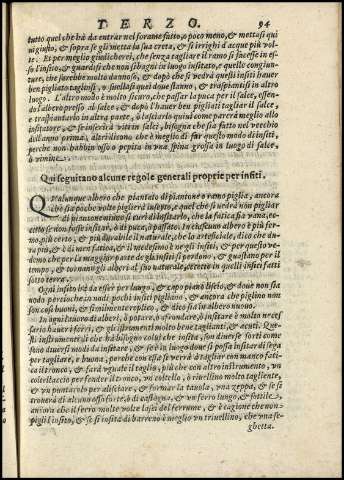 TERZO. 94
tutto quel che hà da entrar nel forame fatto, o poco meno, & mettasi quì
ui giusto, & sopra se gli metta la sua creta, & si irrighi d'acque più vol-
te. Et per meglio giudicherei, che senza tagliare il ramo si facesse in es-
so l'insito, & guardisi che non si bagni in luogo insitato, e quelle congiun-
ture, che sarebbe molto dannoso, & dopò che si vedrà questi insiti hauer
ben pigliato taglinsi, o suellasi quei doue stanno, & traspiantisi in altro
luogo. L'altro modo è molto sicuro, che passar la puca per il salce, essen-
do l'albero presso al salce, & dopò l'hauer ben pigliati tagliar il salce,
e traspiantarlo in altra parte, ò lasciarlo quiui come parerà meglio allo
insitatore, & se inserirà viti in salci, bisogna che sia fatto nel vecchio
dell'anno prima, altri dicono che è meglio di far questo modo di insiti,
perche non habbin osso o pepita in vna spina grossa in luogo di salce,
ò vimine.
Qui seguitano alcune regole generali proprie per insiti.
QValunque albero che piantato di piantone o ramo piglia, ancor
che sia poche volte pigliera insito, e quel che si uedrà non pigliar
di piantone niuno si curi d'insitarlo, che la fatica fia vana, ec-
cetto se non fusse insitar, ò di puca, ò passato. In ciascun albero è più fer-
mo, più certo, & più durabile il naturale, che lo artefitiale, dico che du-
ra più, & è di men fatica, & il medesimo è ne gli insiti, & per questo ve-
demo che per la maggior parte de gli insiti si perdono, & guastano per il
tempo, & tornan gli alberi al suo naturale, eccetto in quelli insiti fatti
sotto terra.
Ogni insito hà da esser per luogo, & capo piano liscio, & doue non sia
nodo perciòche in nodi pochi insiti pigliano, & ancora che piglino non
son così buoni, & similmente replico, & dico sia in albero nuouo.
In ogni tratta di alberi, ò potare, ò sfrondare, ò insitare è molto neces-
sario hauere i ferri, & gli istrumenti molto bene taglienti, & acuti. Que-
sti instrumenti di che hà bisogno colui che insita, son diuerse sorti come
sono diuersi modi da insitare, & serà in luogo doue si possa insitar di sega
per tagliare, e buona, perche con essa se verrà à tagliar con manco fati-
ca il tronco, & farà vguale il taglio, più che con altro instrumento, vn
coltellaccio per fender il tronco, vn coltello, ò triuellino molto tagliente,
& vn puntaruolo per allisciare, & formar la tauola, vna zeppa, & se si
trouerà di alcuno osso forte, ò di castagno, & vn ferro lungo, & sottile,
ancora che il ferro molte volte lasci del ferrume, & è cagione che non
pigli l'insito, & se si insita di barreno è meglio vn triuellino, che vna se-
ghetta.